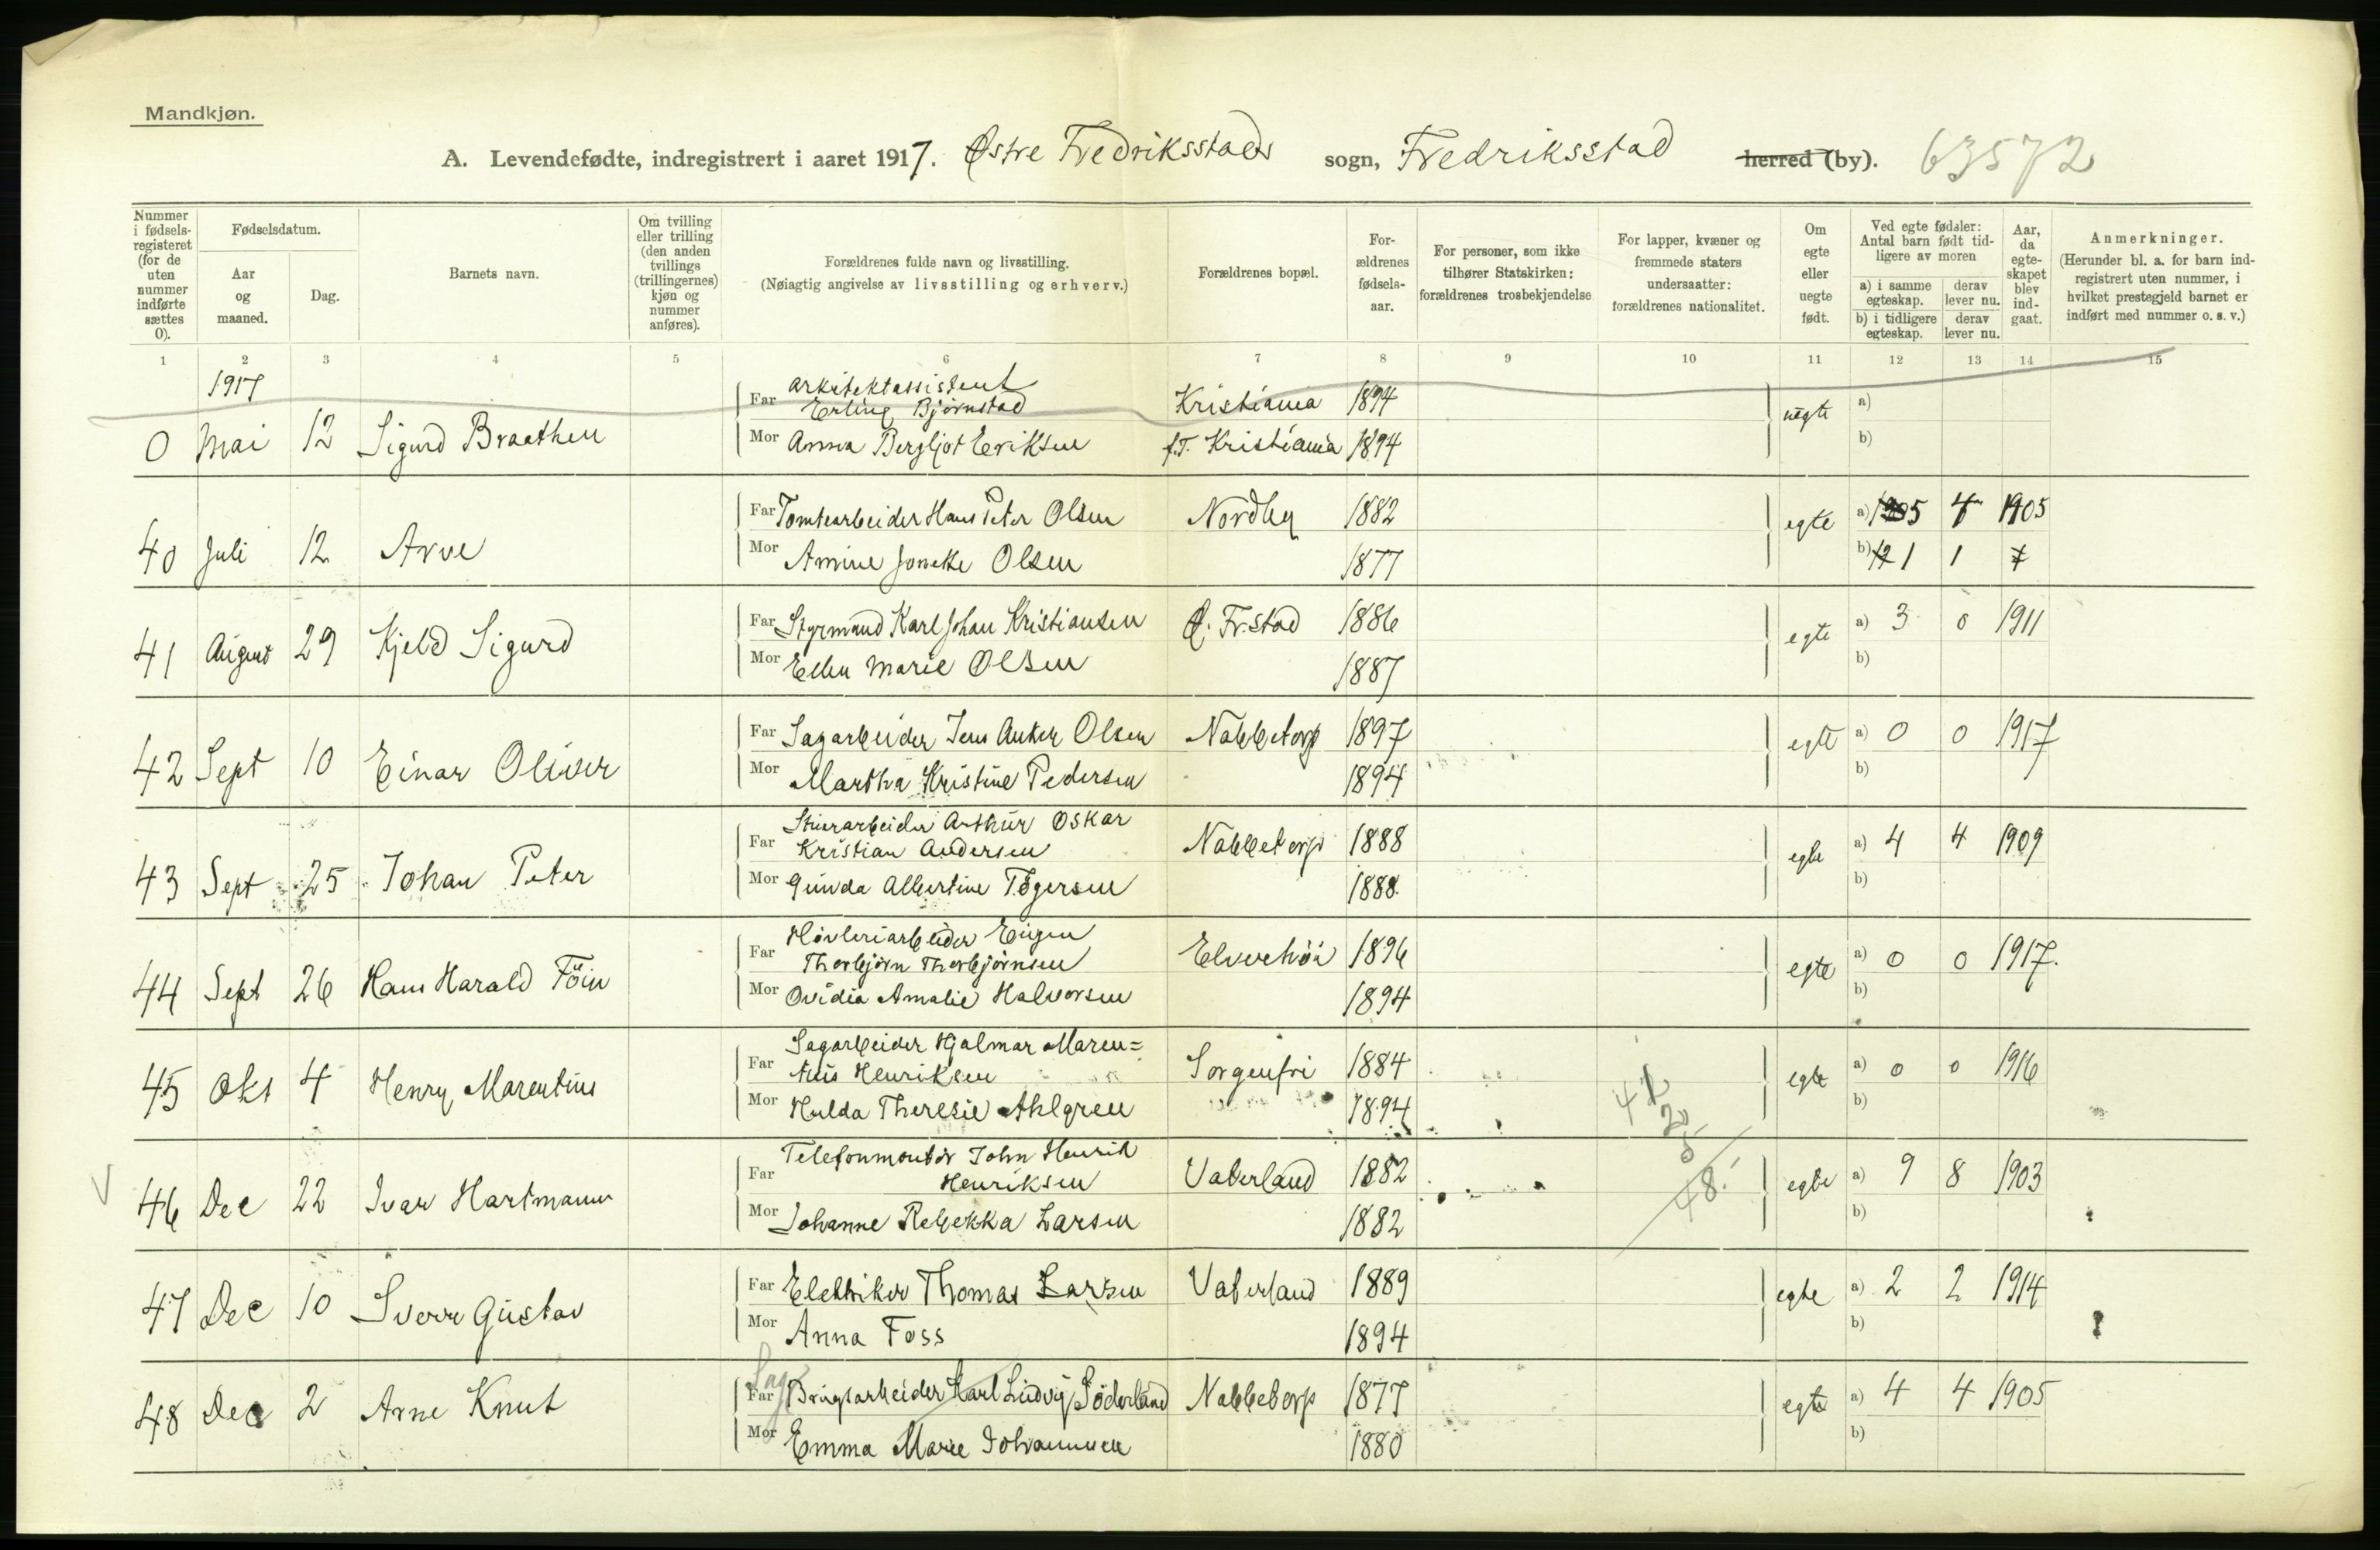 Mandkjøn.
A. Levendefødte, indregistrert i aaret 1917. Østre Fredriksstads sogn, Fredriksstad herred (by). 63572
Nummer i fødselsregisteret (for de uten nummer indførte sættes 0).
Fødselsdatum.
Aar og maaned.
Dag.
Barnets navn.
Om tvilling eller trilling (den anden tvillings (trillingernes) kjøn og nummer anføres).
Forældrenes fulde navn og livsstilling.
(Nøiagtig angivelse av livsstilling og erhverv.)
Forældrenes bopæl.
For-
ældrenes
fødsels-
aar.
For personer, som ikke
tilhører Statskirken:
forældrenes trosbekjendelse
For lapper, kvæner og
fremmede staters
undersaatter:
forældrenes nationalitet.
Om
egte
eller
uegte
født.
Ved egte fødsler:
Antal barn født tid-
ligere av moren
a) i samme egteskap.
derav lever nu.
b) i tidligere egteskap.
derav lever nu.
Aar,
da
egte-
skapet
blev
ind-
gaat.
Anmerkninger.
(Herunder bl. a. for barn ind-
registrert uten nummer, i
hvilket prestegjeld barnet er
indført med nummer o. s. v.)
1 2 3 4 5 6 7 8 9 10 11 12 13 14 15
1917
arkitektassistent
Far Erling Bjørnstad Kristiania 1894 uegte a)
0 Mai 12 Sigurd Braathen
Mor Anna Bergljot Eriksen f.T. Kristiania 1894 b)
Far Tomtearbeider Hans Peter Olsen Nordby 1882 egte a) 5 4 1905
40 Juli 12 Arve
Mor Amine Olsen 1877 b) 1 1
Far Styrmand Karl Johan Kristiansen Ø. Fr.stad 1886 egte a) 3 0 1911
41 August 29 Kjeld Sigurd
Mor Ellen Marie Olsen 1887 b)
Far Sagarbeider Jens Anker Olsen Nabbetorp 1897 egte a) 0 0 1917
42 Sept 10 Einar Oliver
Mor Martha Kristine Pedersen 1894 b)
Stuerarbeider Arthur Oskar
Far Kristian Andersen Nabbetorp 1888 egte a) 4 4 1909
43 Sept 25 Johan Peter
Mor Gunda Albertine Tøgersen 1888. b)
Høvleriarbeider Eugen
Far Thorbjørn Thorbjørnsen Elvehöi 1896 egte a) 0 0 1917.
44 Sept 26 Hans Harald Föin
Mor Ovidia Amalie Halvorsen 1894 b)
Sagarbeider Hjalmar Maren=
Far tius Henriksen Sorgenfri 1884 egte a) 0 0 1916
45 Okt 4 Henry Marentius
Mor Hulda Theresie Ahlgren 1894 b)
Telefonmontör John Henrik
Far Henriksen Vaterland 1882 egte a) 9 8 1903
46 Dec 22 Ivar Hartmann
Mor Johanne Rebekka Larsen 1882 b)
48.
Far Elektriker Thomas Larsen Vaterland 1889 egte a) 2 2 1914
47 Dec 10 Sverre Gustav
Mor Anna Foss 1894 b)
Sag
Far Brugsarbeider Karl Ludvig Söderlund Nabbetorp 1877 egte a) 4 4 1905
48 Dec 2 Arne Knut
Mor Emma Marie Johannesen 1880 b)